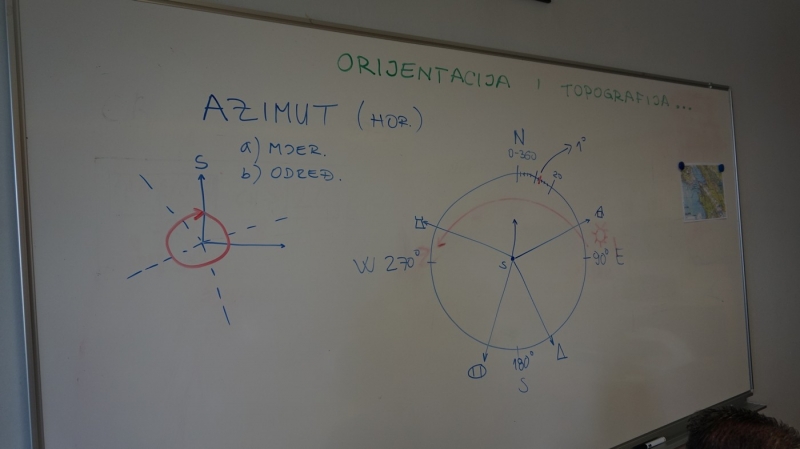 ORIJENTACIJA I TOPOGRAFIJA...
AZIMUT (HOR.)
a) MJER.
b) ODREĐ.
S
N
0-360
1°
20
W 270°
S
90° E
180°
S